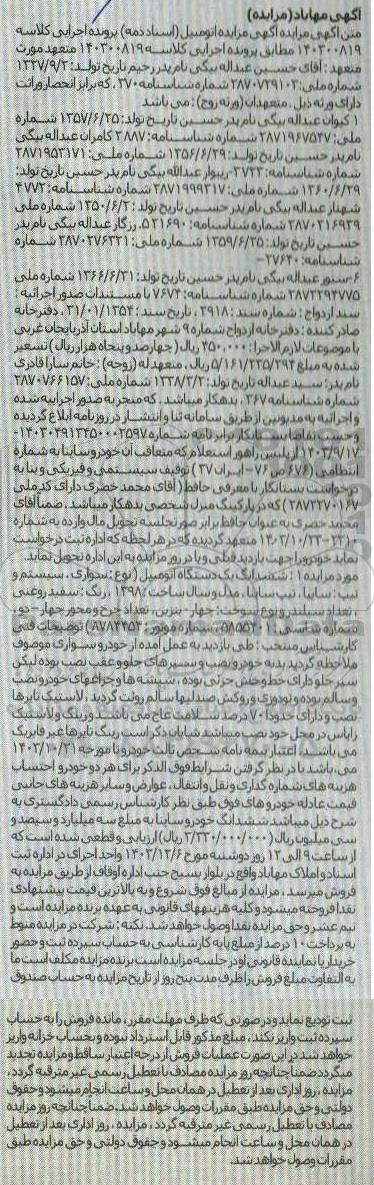 آگهی مهاباد(مزایده)
متن آگهی مزایده آگهی مزایده اتومبیل (اسناد ذمه) پرونده اجرایی کلاسه
۱۴۰۳۰۰۸۱۹ مطابق پرونده اجرایی کلاسه ۱۴۰۳۰۰۸۱۹ متعهد مورث
متعهد : آقای حسین عبداله بیگی نام پدر رحیم تاریخ تولد: ۱۳۲۷/۹/۲
شماره ملی: ۲۸۷۰۷۲۹۱۰۳ شماره شناسنامه: ۳۷۰ ، که برابر انحصار وراثت
دارای ورثه ذیل . متعهدان (ورثه زوج) : می باشد
۱ کیوان عبداله بیگی نام پدر حسین تاریخ تولد: ۱۳۵۷/۶/۲۵ شماره
ملی: ۲۸۷۱۹۶۷۵۴۷ شماره شناسنامه: ۲۸۸۷ کامران عبداله بیگی
نام پدر حسین تاریخ تولد: ۱۳۵۶/۶/۲۹ شماره ملی: ۲۸۷۱۹۵۳۱۷۱
شماره شناسنامه: ۳۷۳۳-ریبوار عبدالله بیگی نام پدر حسین تاریخ تولد:
۱۳۶۰/۶/۲۹ شماره ملی: ۲۸۷۱۹۹۹۳۱۷ شماره شناسنامه: ۴۷۷۳
شهناز عبداله بیگی نام پدر حسین تاریخ تولد : ۱۳۵۰/۶/۳ شماره ملی
۲۸۷۰۲۱۶۹۳۹ شماره شناسنامه: ۵۲۱۶۹۰، رزگار عبداله بیگی نام پدر
حسین تاریخ تولد: ۱۳۵۹/۶/۲۵ شماره ملی: ۲۸۷۰۲۷۶۳۳۱ شماره
شناسنامه: ۲۷۶۴۰-
۶-سنور عبداله بیگی نام پدر حسین تاریخ تولد: ۱۳۶۶/۶/۳۱ شماره ملی
۲۸۷۲۲۹۴۷۷۵ شماره شناسنامه: ۷۶۷۴ با مستندات صدور اجرائیه :
سند ازدواج : شماره سند : ۲۹۱۸ ، تاریخ سند : ۳۱/۰۱/۱۳۵۴ ، دفترخانه
صادر کننده : دفترخانه ازدواج شماره ۹ شهر مهاباد استان آذربایجان غربی
با موضوعات لازم الاجرا : ۴۵۰,۰۰۰ ریال (چهارصد و پنجاه هزار ریال) تسعیر
شده به مبلغ ۵/۱۶۱/۲۳۵/۲۹۴ ریال . متعهد له (زوجه) : خانم سارا قادری
نام پدر: سید عبداله تاریخ تولد: ۱۳۳۸/۳/۲ شماره ملی: ۲۸۷۰۷۶۶۱۵۷
شماره شناسنامه ۳۶۷ . بدهکار میباشد . که منجر به صدور اجراییه شده
و اجرائیه به مدیونین از طریق سامانه ثنا و انتشار در روزنامه ابلاغ گردیده
و حسب تقاضا بستانکار برابر نامه شماره ۱۴۰۳۰۴۹۱۳۴۵۰۰۰۲۵۹۷-
۱۴۰۳/۹/۱۷ از پلیس راهور استعلام که متعاقب آن خودرو ساینا به شماره
انتظامی (۶۷۶ ص ۷۶- ایران ۳۷) توقیف سیستمی و فیزیکی و بنا به
درخواست بستانکار با معرفی حافظ (آقای محمد خضری دارای کد ملی
۲۸۷۲۲۷۰۱۶۷) که در پارکینگ منزل شخصی بدهکار میباشد . ضمنا آقای
محمد خضری به عنوان حافظ برابر صورتجلسه تحویل مال وارده به شماره
۲۳۱۰-۱۴۰۳/۱۰/۲۳ متعهد گردیده که در هر لحظه که اداره ثبت درخواست
نماید خودرو را جهت بازدید قبلی و یا در روز مزایده به این اداره تحویل نماید.
مورد مزایده ۱ : ششدانگ یک دستگاه اتومبیل (نوع : سواری ، سیستم و
تیپ : سایپا ، تیپ ساینا ، مدل و سال ساخت : ۱۳۹۸ ، رنگ : سفید روغنی
، تعداد سیلندر و نوع سوخت : چهار - بنزین ، تعداد چرخ و محور چهار - دو ،
شماره شاسی : ۰۵۸۵۵۴۰۱ ، شماره موتور : ۸۷۸۴۴۵۳) توضیحات فنی
کارشناس منتخب : طی بازدید به عمل آمده از خودرو سواری موصوف
ملاحظه گردید بدنه خودرو نصب و سپرهای جلو و عقب نصب بوده لیکن
سپر جلو دارای خط و خش جزئی بوده ، شیشه ها و چراغهای خودرو نصب
و سالم بوده و تودوزی و روکش صندلیها سالم رویت گردید ، لاستیک تایرها
نصب و دارای حدودا ۷۰ درصد سلامت عاج می باشد و رینگ و لاستیک
زاپاس در محل خود نصب میباشد شایان ذکر است رینگ تایرها غیر فابریک
می باشد . اعتبار بیمه نامه شخص ثالث خودرو تا مورخه ۱۴۰۳/۱۰/۲۱
می باشد با در نظر گرفتن شرایط فوق الذکر برای هر دو خودرو احتساب
هزینه های شماره گذاری و نقل وانتقال ، عوارض و سایر هزینه های جانبی
قیمت عادله خودرو های فوق طبق نظر کارشناس رسمی دادگستری به
شرح ذیل میباشد ششدانگ خودرو ساینا به مبلغ سه میلیارد و سیصد و
سی میلیون ریال (۳/۳۳۰/۰۰۰/۰۰۰ ریال) ارزیابی و قطعی شده است که
از ساعت ۹ الی ۱۲ روز دوشنبه مورخ ۱۴۰۳/۱۲/۶ واحد اجرای در اداره ثبت
اسناد و املاک مهاباد واقع در بلوار بسیج جنب اداره اوقاف از طریق مزایده به
فروش میرسد . مزایده از مبالغ فوق شروع و به بالاترین قیمت پیشنهادی
نقدا فروخته میشود و کلیه هزینههای قانونی به عهده برنده مزایده است و
نیم عشر و حق مزایده نقدا وصول خواهد شد. نکته : شرکت در مزایده منوط
به پرداخت ۱۰ درصد از مبلغ پایه کارشناسی به حساب سپرده ثبت و حضور
خریدار یا نماینده قانونی او در جلسه مزایده است برنده مزایده مکلف است ما
به التفاوت مبلغ فروش را ظرف مدت پنج روز از تاریخ مزایده به حساب صندوق
ثبت تودیع نماید و در صورتی که ظرف مهلت مقرر ، مانده فروش را به حساب
سپرده ثبت واریز نکند ، مبلغ مذکور قابل استرداد نبوده و بحساب خزانه واریز
خواهد شد در این صورت عملیات فروش از درجه اعتبار ساقط و مزایده تجدید
میگردد ضمنا چنانچه روز مزایده مصادف با تعطیل رسمی غیر مترقبه گردد ،
مزایده ، روز اداری بعد از تعطیل در همان محل و ساعت انجام میشود و حقوق
دولتی و حق مزایده طبق مقررات وصول خواهد شد. ضمنا چنانچه روز مزایده
مصادف با تعطیل رسمی غیر مترقبه گردد ، مزایده ، روز اداری بعد از تعطیل
در همان محل و ساعت انجام میشود و حقوق دولتی و حق مزایده طبق
مقررات وصول خواهد شد.